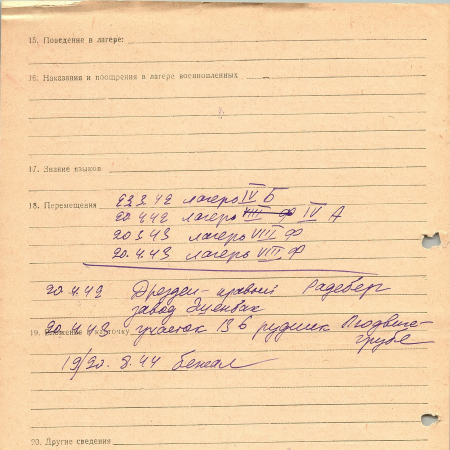 15. Поведение в лагере:
16. Наказания и поощрения в лагере военнопленных
17. Знание языков
18. Перемещения 23.3.42 лагерь IV Б
20.4.42 лагерь VIII Ф IV А
20.3.43 лагерь VIII Ф
20.4.43 лагерь VIII Ф
20.4.42 Дрезден - Радеберг
завод
19. в карточку
20.4.43 участок В 6 рудник Людвигс-
грубе
19/20.8.44 бежал
20. Другие сведения